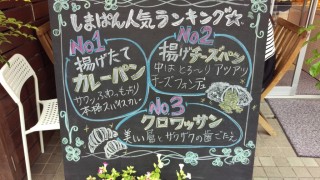 しまぱん人気ランキング☆
No1
揚げたて
カレーパン
サクッふわっもっちり
本格スパイスカレー
No2
揚げチーズパン
中は とろ〜り アツアツ
チーズフォンデュ
No3
クロワッサン
美しい層とザクザクの歯ごたえ